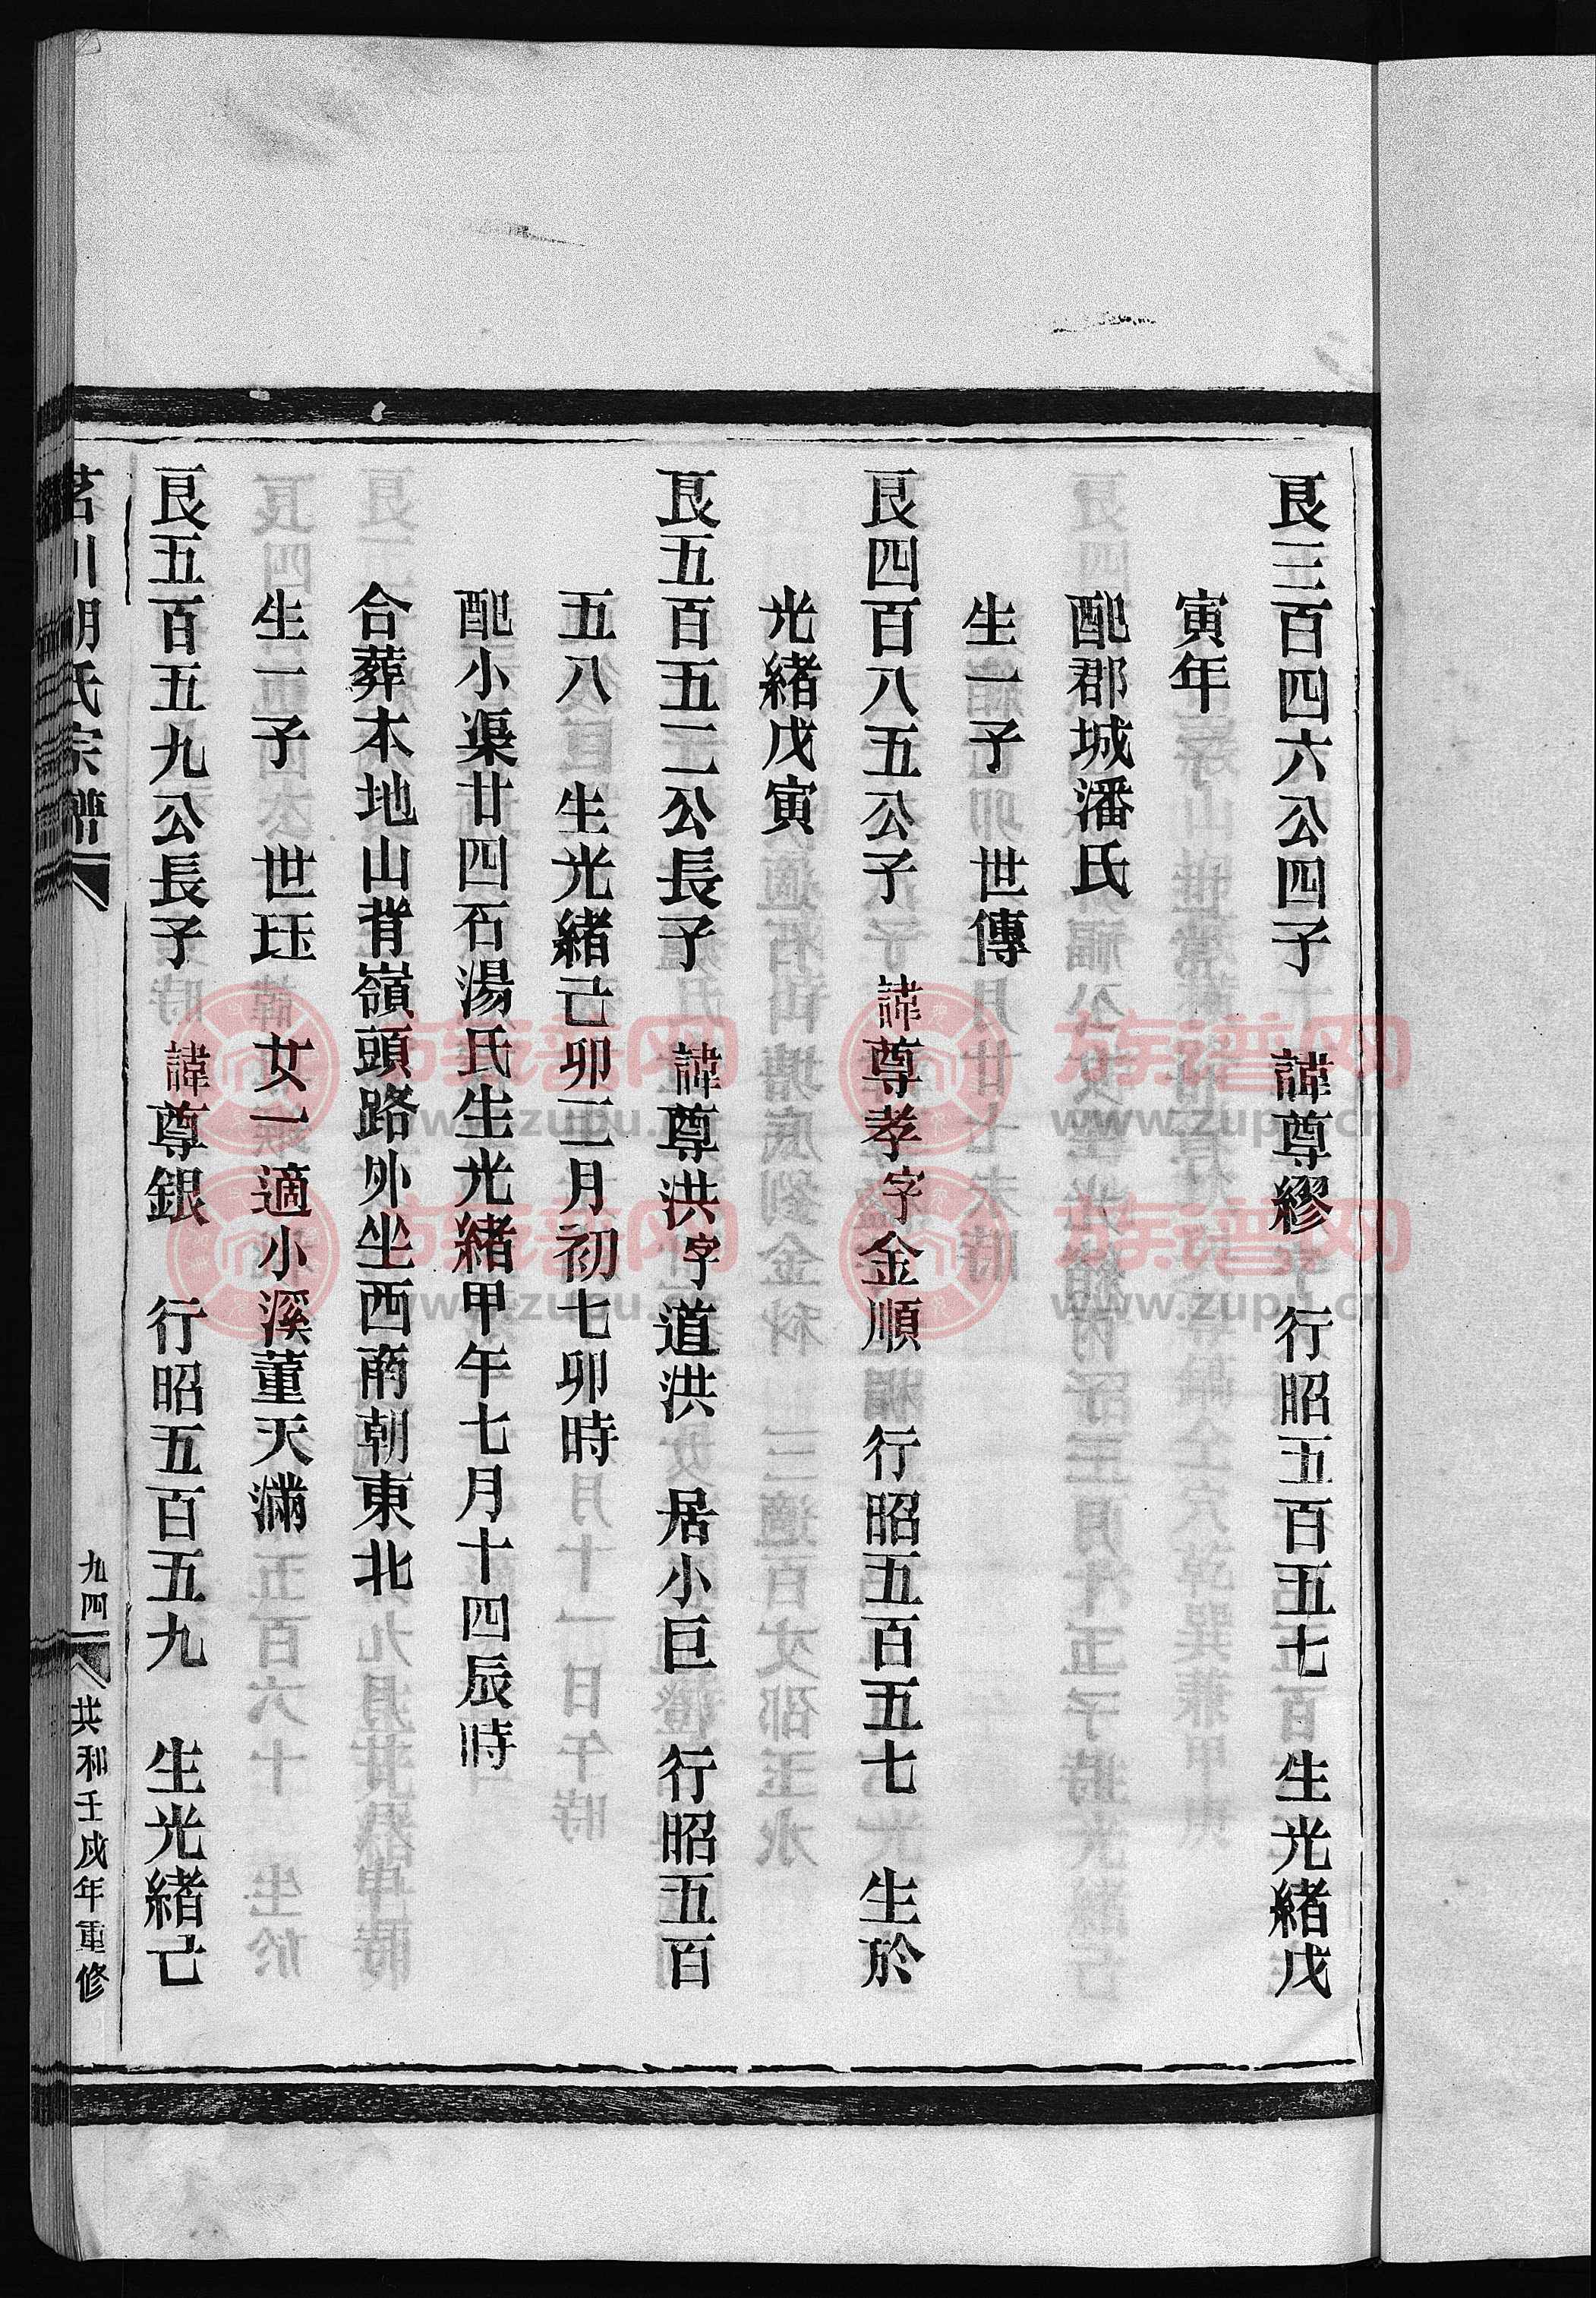 艮三百四六公四子　諱尊繆　行昭五百五七　生光緒戊
寅年
配郡城潘氏
生一子　世傳
艮四百八五公子　諱尊孝字金順　行昭五百五七　生於
光緒戊寅
艮五百五二公長子　諱尊洪字道洪　居小巨　行昭五百
五八　生光緒己卯三月初七卯時
配小渠廿四石湯氏生光緒甲午七月十四辰時
合葬本地山背嶺頭路外坐西南朝東北
生一子　世珏　女一適小溪董天滿
艮五百五九公長子　諱尊銀　行昭五百五九　生光緒己
茗川胡氏宗譜
九四
共和壬戌年重修
族谱网
www.zupu.cn
族谱网
www.zupu.cn
族谱网
www.zupu.cn
族谱网
www.zupu.cn